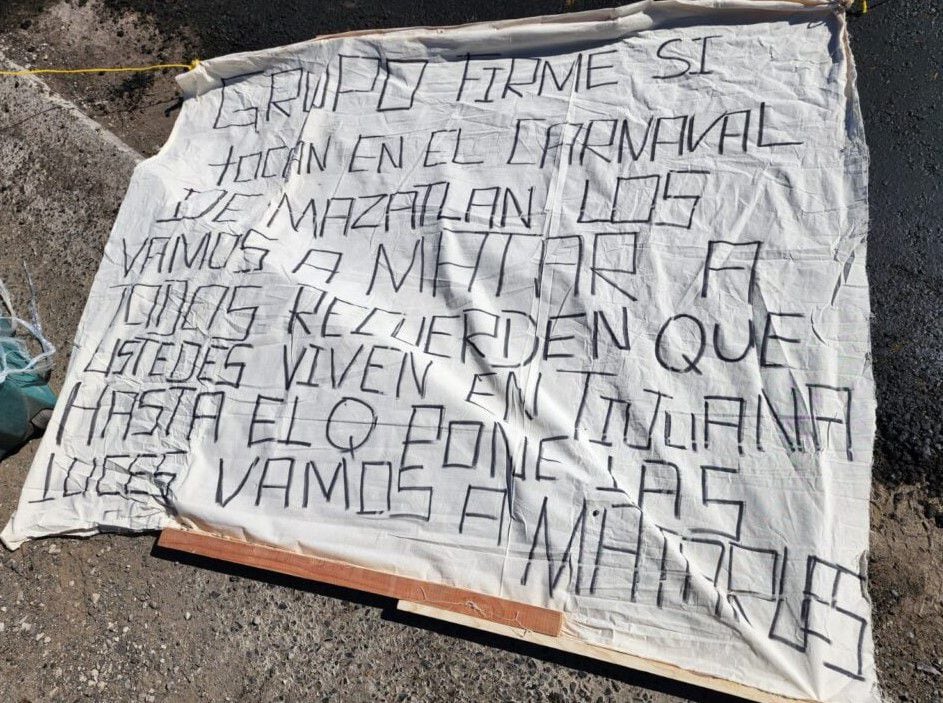 GRUPO FIRME SI
tOCAN EN EL CARNAVAL
DE MAZATLAN LOS
VAMOS A MATAR A
TODOS RECUERDEN QUE
USTEDES VIVEN EN TIJUANA
HASTA EL Q PONE LAS
LUCES VAMOS A
MATARLES